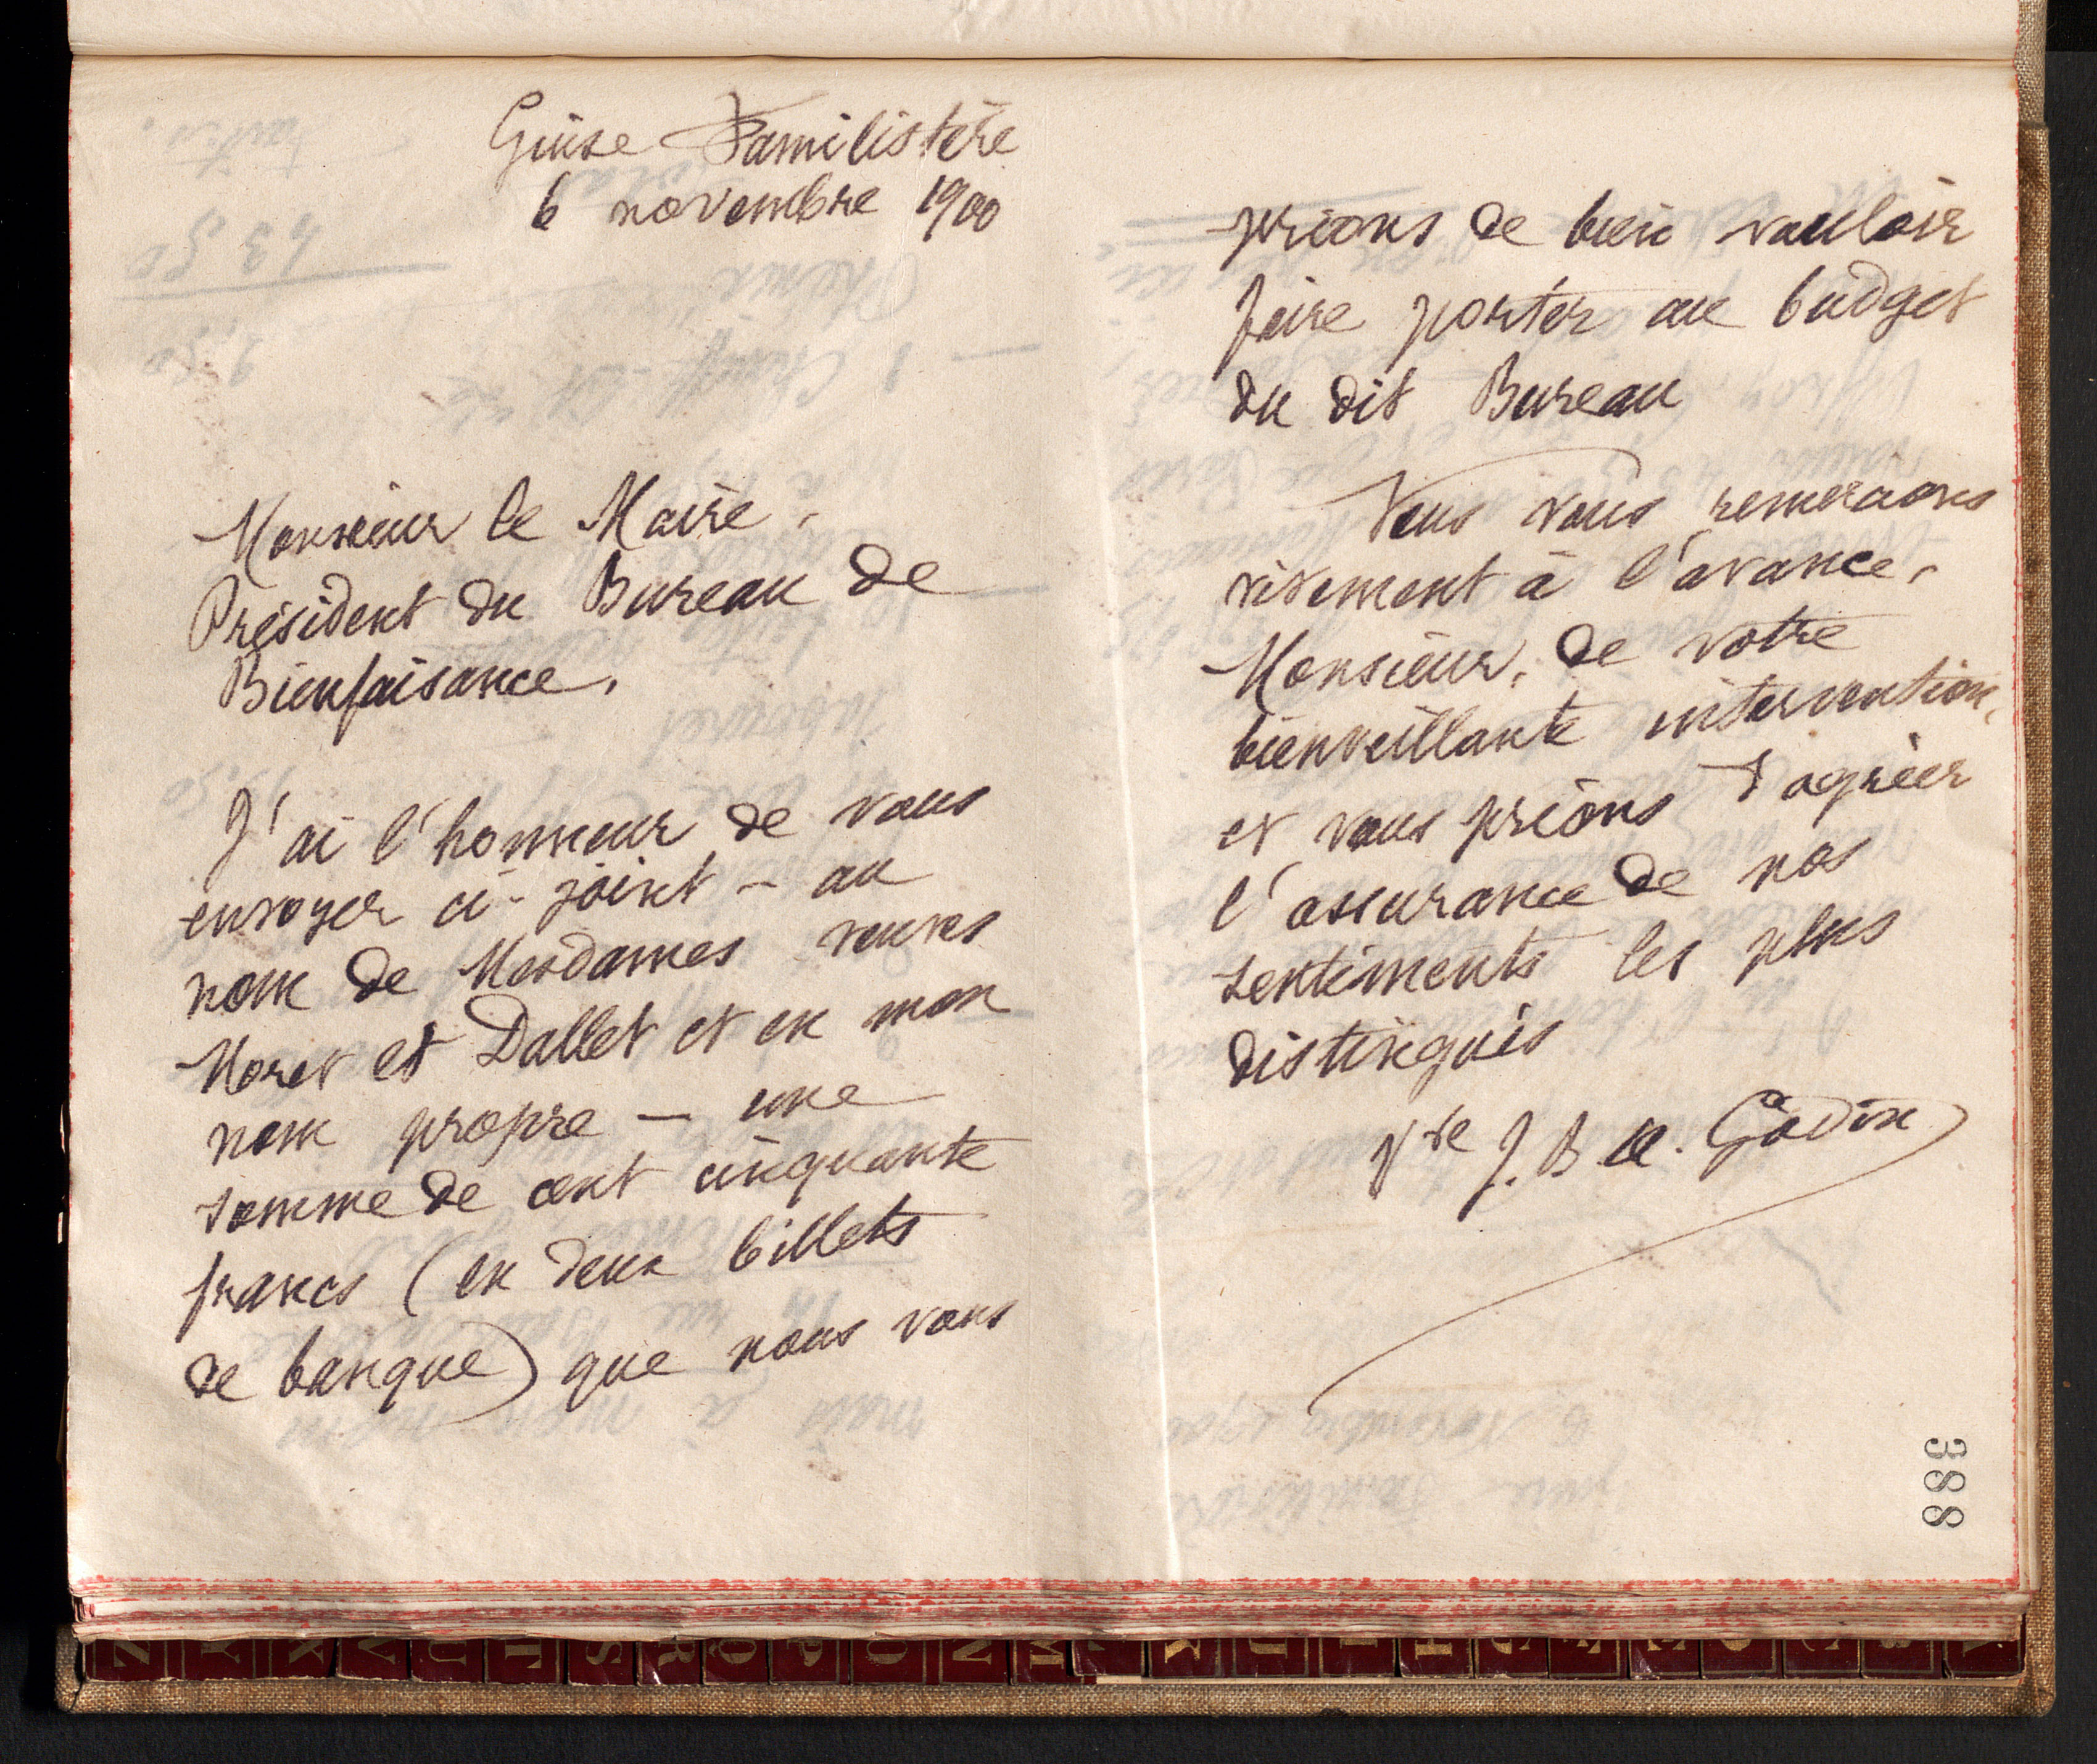 Guise Familistère
6 novembre 1900
Monsieur le Maire,
Président du Bureau de
Bienfaisance,
J'ai l'honneur de vous
envoyer ci-joint - au
nom de Mesdames veuves
Moret et Dallet et en mon
nom propre - une
somme de cent cinquante
francs (en deux billets
de banque) que nous vous
prions de bien vouloir
faire porter au budget
du dit Bureau
Nous vous remercions
vivement à l'avance,
Monsieur, de votre
bienveillante intervention,
et vous prions d'agréer
l'assurance de nos
sentiments les plus
distingués
Vve J. B. A. Godin
388
Z Y X V U T S R Q P O N M L K J I H G F E D C B A